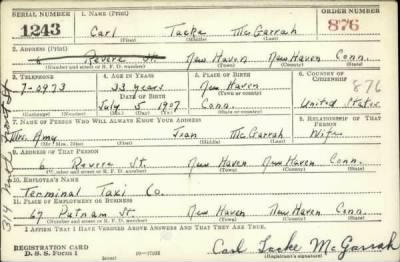 SERIAL NUMBER 1. NAME (Print) ORDER NUMBER
1243 Carl Tacke McGarrah 876
(First) (Middle) (Last)
2. ADDRESS (Print)
6 Revere St. New Haven New Haven Conn.
(Number and street or R. F. D. number) (Town) (County) (State)
3. TELEPHONE 4. AGE IN YEARS 5. PLACE OF BIRTH 6. COUNTRY OF CITIZENSHIP
7-0973 33 years New Haven 876
DATE OF BIRTH (Town or county)
July 5 1907 Conn. United States
(Mo.) (Day) (Yr.) (State or country)
7. NAME OF PERSON WHO WILL ALWAYS KNOW YOUR ADDRESS 8. RELATIONSHIP OF THAT PERSON
Mrs. Amy Jean McGarrah Wife
(Mr., Mrs., Miss) (First) (Middle) (Last)
9. ADDRESS OF THAT PERSON
6 Revere St. New Haven New Haven Conn.
(Number and street or R. F. D. number) (Town) (County) (State)
10. EMPLOYER'S NAME
Terminal Taxi Co.
11. PLACE OF EMPLOYMENT OR BUSINESS
67 Putnam St. New Haven New Haven Conn.
(Number and street or R. F. D. number) (Town) (County) (State)
I AFFIRM THAT I HAVE VERIFIED ABOVE ANSWERS AND THAT THEY ARE TRUE.
REGISTRATION CARD
D. S. S. FORM 1 Carl Tacke McGarrah
(over) (Registrant's signature)